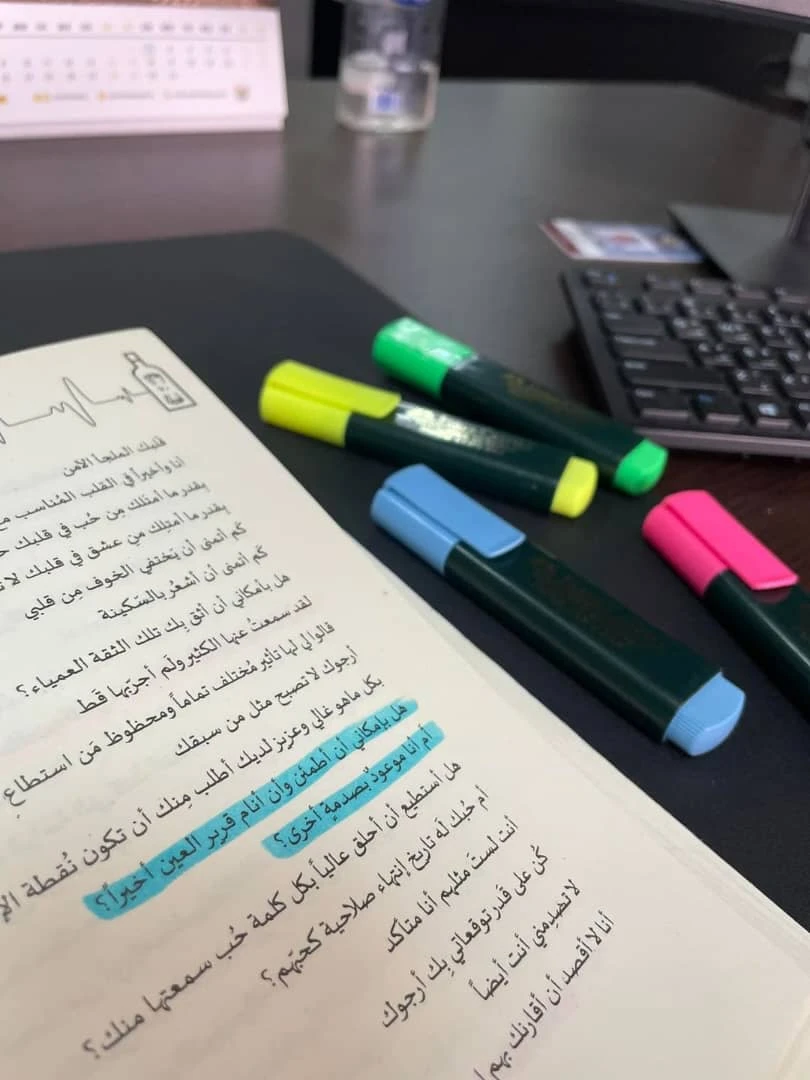 قلبك الملجأ الآمن
أنا وأخيراً في القلب المُناسب
بقدر ما أمتلك مِن حُب في قلبك
بقدر ما أمتلك من عشق في قلبك لا
كم أتمنى أن يَختفي الخوف مِن قلبي
كم أتمنى أن أشعُر بالسّكينة
هل بأمكاني أن أثق بِك تلك الثقة العمياء؟
لقد سمعتُ عنها الكثير ولَم أجرّبها قط
قالوا لي لها تأثير مُختلف تماماً ومحظوظ مَن استطاع
أرجوك لا تصبح مثل من سبقك
بكل ماهو غالي وعزيز لديك أطلب مِنك أن تكون نُقطة
هل بإمكاني أن أطمئن وأن أنام قرير العين أخيراً؟
أم أنا موعودٌ بصدمةٍ أخرى؟
هل أستطيع أن أحلق عالياً بكل كلمة حُب سمعتها منك؟
أم حُبك له تاريخ إنتهاء صلاحية كحبّهم؟
أنت لستَ مثلهم أنا متأكد
كُن على قدر توقعاتي بِك أرجوك
لا تصْدِمني أنت أيضاً
أنا لا أقصد أن أقارنك بهم